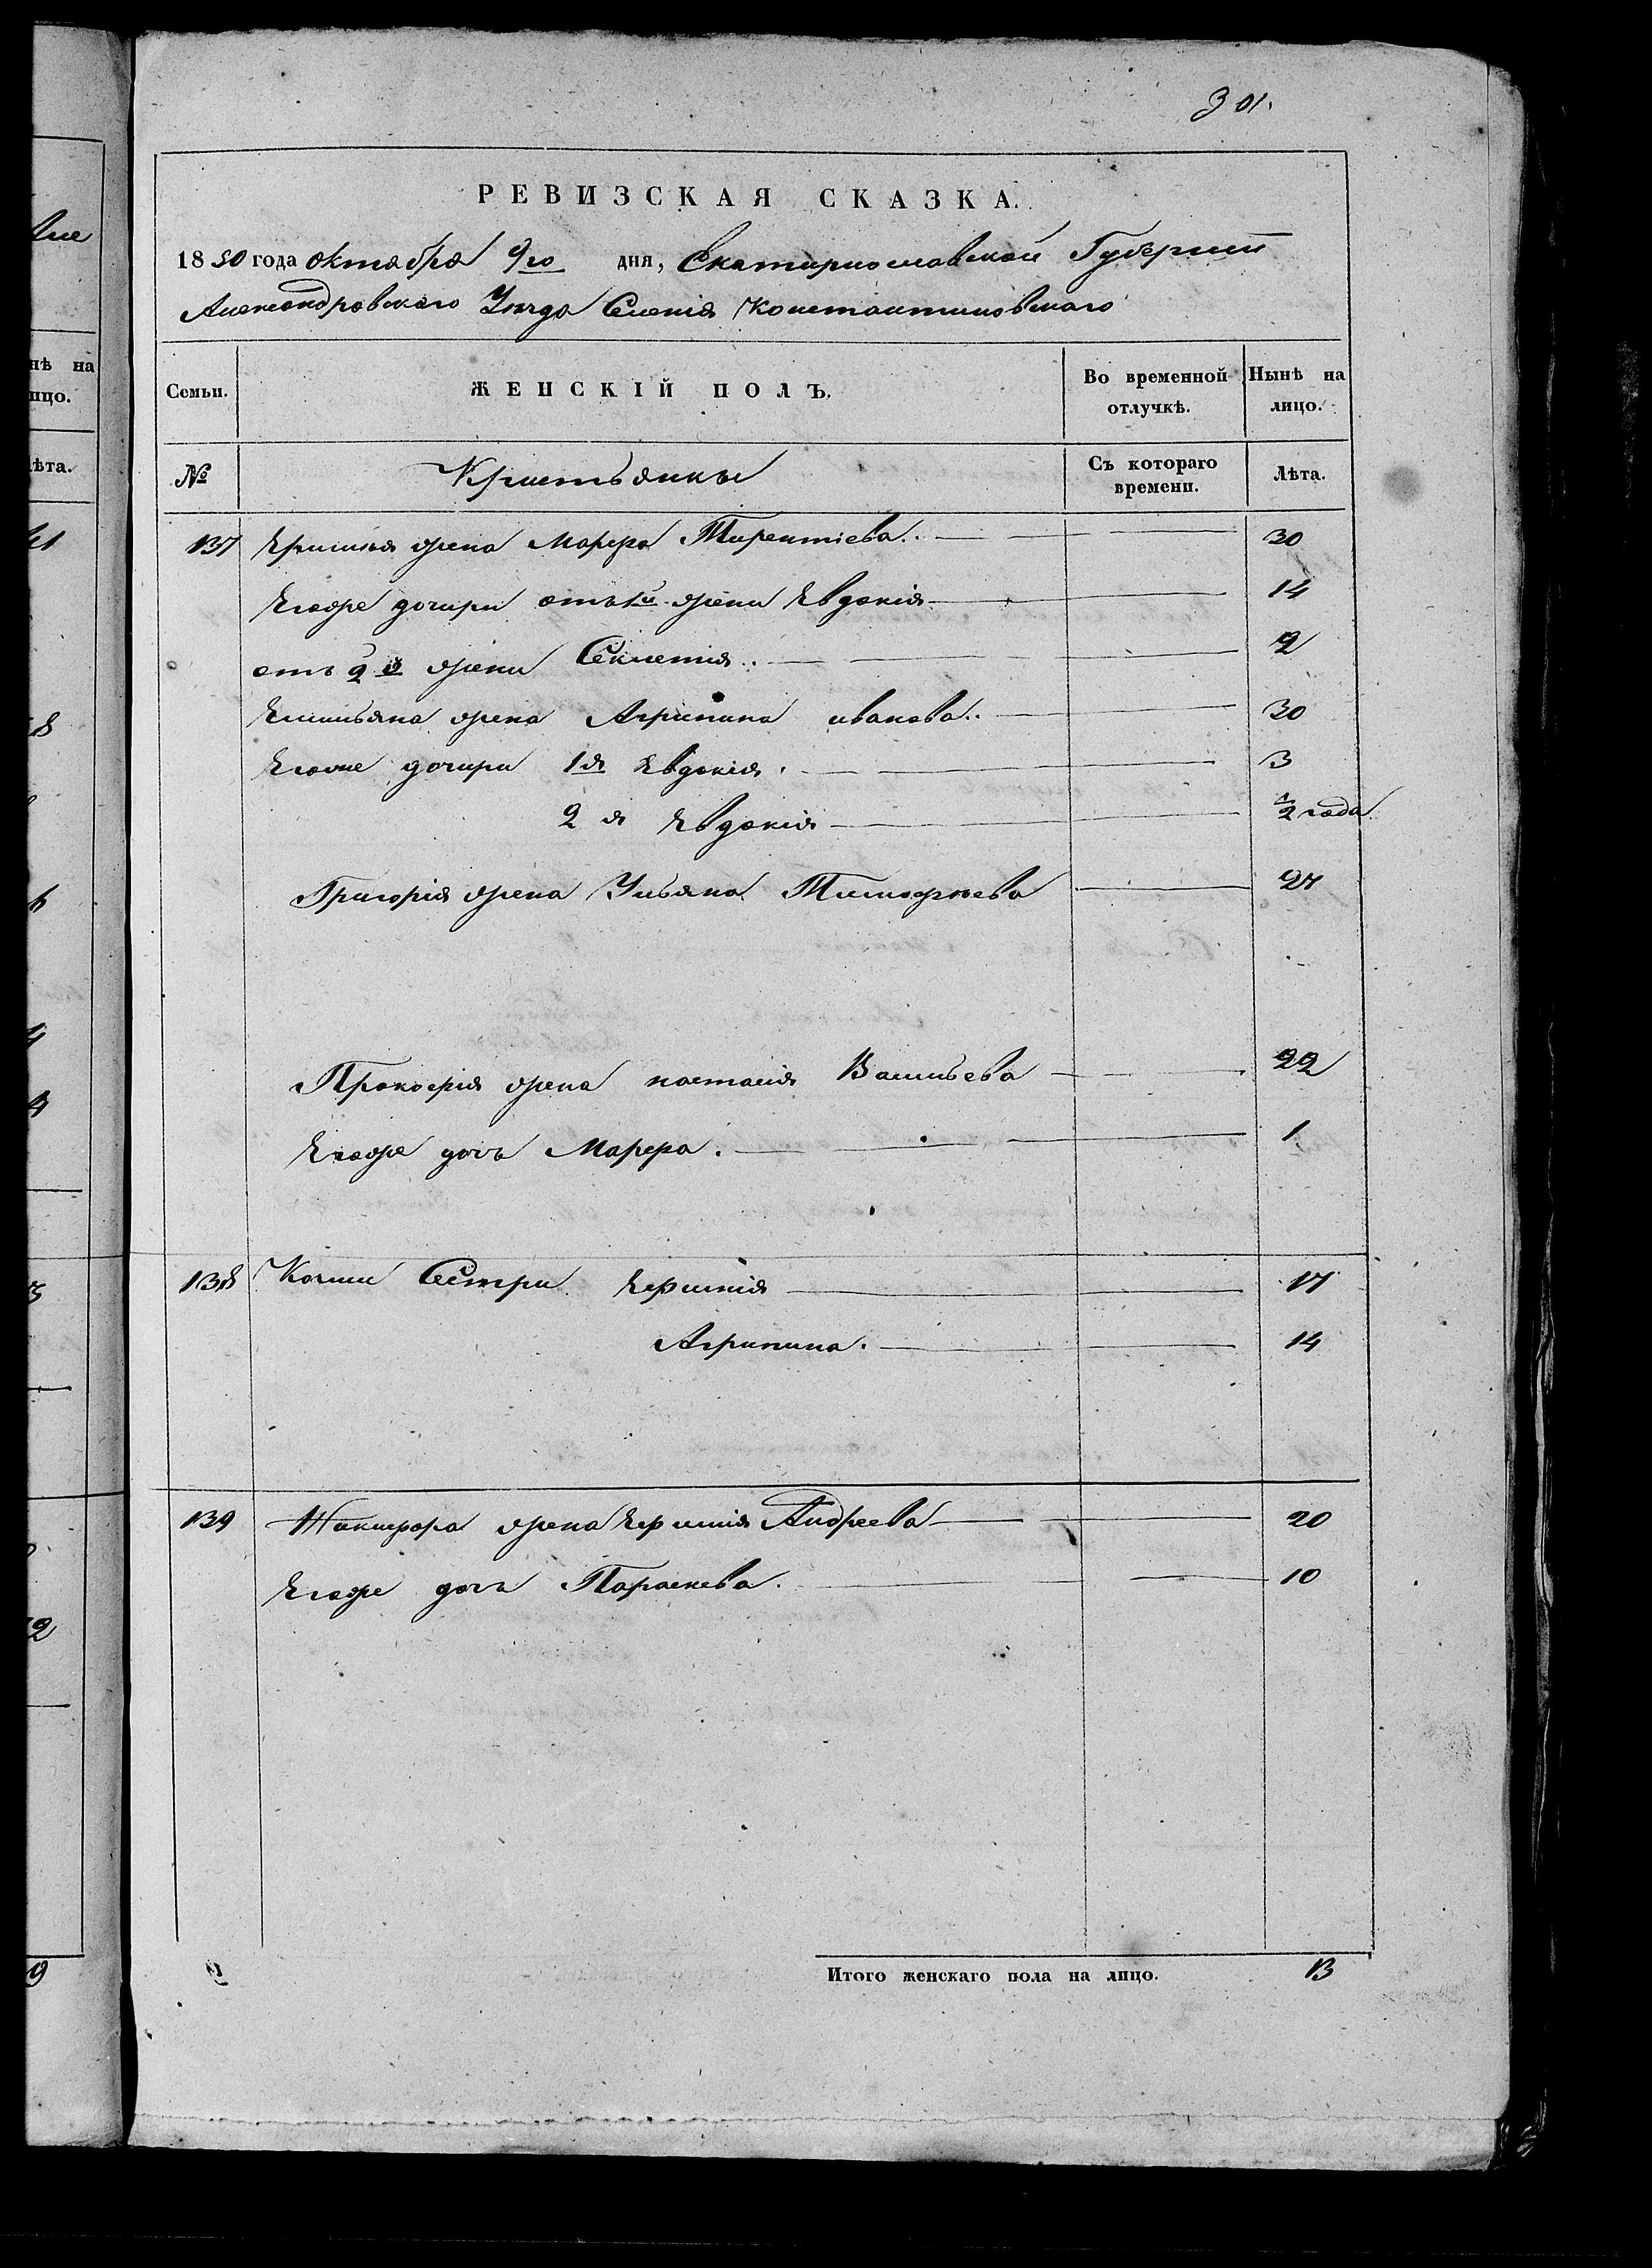 301.
РЕВИЗСКАЯ СКАЗКА.
1850 года октября 9го дня, Екатериославской Губернии
Александровскаго Уѣзда Селенія Константиновскаго
Семьи. ЖЕНСКІЙ ПОЛЪ. Во временной отлучкѣ. Нынѣ на лицо.
№ Крестьянки Съ котораго времени. Лѣта.
137 жена Марфа Терентіева. 30
Егоже дочери отъ 1й жены Евдокія 14
отъ 2й жены Секлетія. 12
Емильяна жена Агрипина иванова. 30
Егоже дочери 1я Евдокія. 3
2я Евдокія ½ года
Григорія жена Ульяна Тимофѣева 27
Прокофія жена настасія Васильева 22
Егоже дочь Марфа. 1
138 Сестри Ефимія 17
Агрипина. 14
139 Никифора жена Ефимія Андреева 20
Егоже дочь Параскева. 10
Итого женскаго пола на лицо. 13